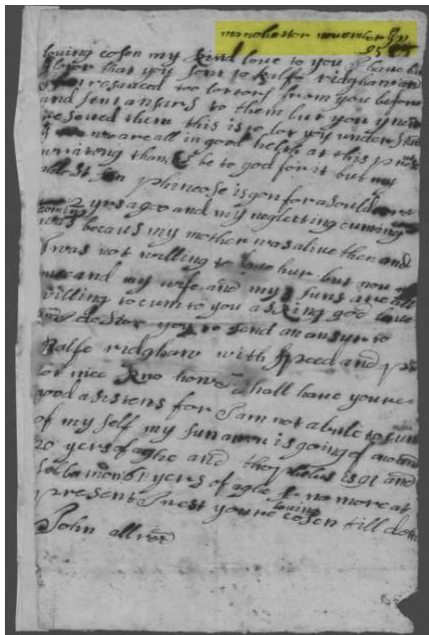 manchester november
95
loving cosen my kind love to you I have
letor that you sent to Ralfe ridghaw and
I reseaved too lettors from you before
and sent ansars to them but you never
reseaved them this is to let you understand
we are all in good helth at this
writing thanks be to god for it but my
oldest sun phineose is gon for a souldeor
2 yrs agoo and my neglecting cuming
was becaus my mother was alive then and
I was not willing to leave hur but now
mee and my wife and my suns are all
willing to cum to you asking god leave
and desior you to send an answr to
Ralfe ridghaw with speed and
for mee kno how I shall have youre
good asistens for I am not abule to cum
of my self my sun aron is going of
20 yers of aghe and theophelus is 91 and
sollamon yers of aghe So no more at
present I rest youre loving cosen till deth
John allred